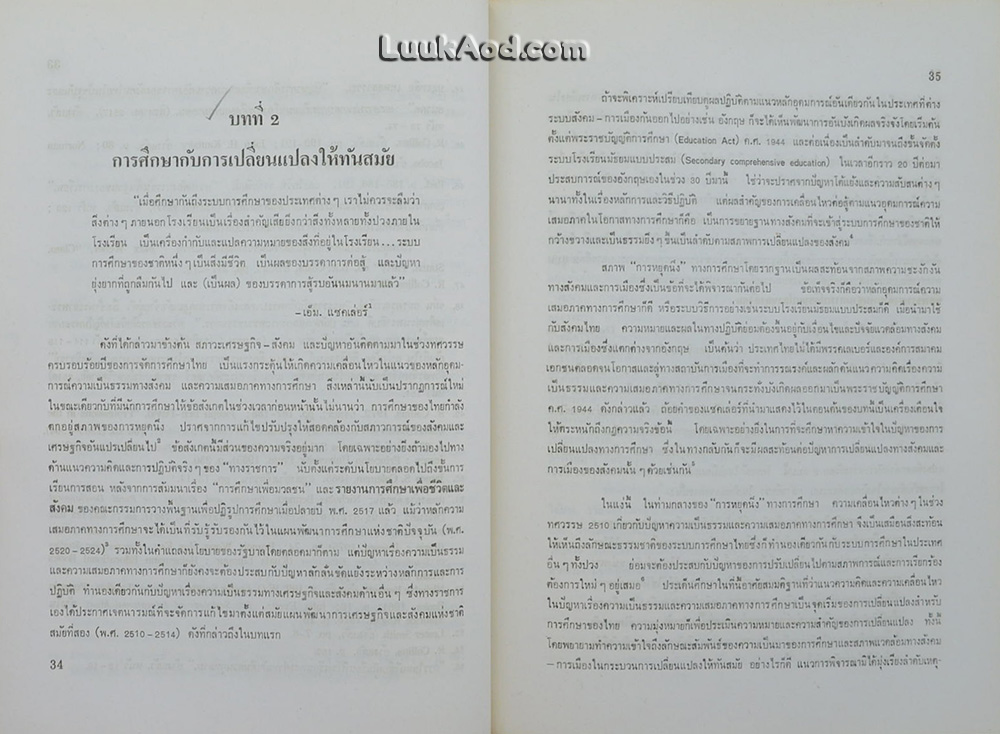 LuukAod.com
บทที่ 2
การศึกษากับการเปลี่ยนแปลงให้ทันสมัย
"เมื่อศึกษากันถึงระบบการศึกษาของประเทศต่างๆ เราไม่ควรจะลืมว่า
สิ่งต่างๆ ภายนอกโรงเรียนเป็นเรื่องสำคัญเสียยิ่งกว่าสิ่งทั้งหลายทั้งปวงภายใน
โรงเรียน เป็นเครื่องกำกับและแปลความหมายของสิ่งที่อยู่ในโรงเรียน...ระบบ
การศึกษาของชาติหนึ่งๆ เป็นสิ่งมีชีวิต เป็นผลของบรรดาการต่อสู้ และปัญหา
ยุ่งยากที่ถูกลืมกันไป และ (เป็นผล) ของบรรดาการสู้รบอันนมนานมาแล้ว"
–เอ็ม. แซดเลอร์1
ดังที่ได้กล่าวมาข้างต้น สภาวะเศรษฐกิจ–สังคม และปัญหาอันติดตามมาในช่วงทศวรรษ
ครบรอบร้อยปีของการจัดการศึกษาไทย เป็นแรงกระตุ้นให้เกิดความเคลื่อนไหวในแนวของหลักอุดม-
การณ์ความเป็นธรรมทางสังคม และความเสมอภาคทางการศึกษา สิ่งเหล่านี้นับเป็นปรากฏการณ์ใหม่
ในขณะเดียวกับที่มีนักการศึกษาให้ข้อสังเกตในช่วงเวลาก่อนหน้านั้นไม่นานว่า การศึกษาของไทยกำลัง
ตกอยู่สภาพของการหยุดนิ่ง ปราศจากการแก้ไขปรับปรุงให้สอดคล้องกับสภาวการณ์ของสังคมและ
เศรษฐกิจอันแปรเปลี่ยนไป2 ข้อสังเกตนี้มีส่วนของความจริงอยู่มาก โดยเฉพาะอย่างยิ่งถ้ามองไปทาง
ด้านแนวความคิดและการปฏิบัติจริงๆ ของ "ทางราชการ" นับตั้งแต่ระดับนโยบายตลอดไปถึงขั้นการ
เรียนการสอน หลังจากการสัมมนาเรื่อง "การศึกษาเพื่อมวลชน" และรายงานการศึกษาเพื่อชีวิตและ
สังคม ของคณะกรรมการวางพื้นฐานเพื่อปฏิรูปการศึกษาเมื่อปลายปี พ.ศ. 2517 แล้ว แม้ว่าหลักความ
เสมอภาคทางการศึกษาจะได้เป็นที่รับรู้รับรองกันไว้ในแผนพัฒนาการศึกษาแห่งชาติปัจจุบัน (พ.ศ.
2520–2524)3 รวมทั้งในคำแถลงนโยบายของรัฐบาลโดยตลอดมาก็ตาม แต่ปัญหาเรื่องความเป็นธรรม
และความเสมอภาคทางการศึกษาก็ยังคงจะต้องประสบกับปัญหาลักลั่นขัดแย้งระหว่างหลักการและการ
ปฏิบัติ ทำนองเดียวกันกับปัญหาเรื่องความเป็นธรรมทางเศรษฐกิจและสังคมด้านอื่นๆ ซึ่งทางราชการ
เองได้ประกาศเจตนารมณ์ที่จะจัดการแก้ไขมาตั้งแต่สมัยแผนพัฒนาการเศรษฐกิจและสังคมแห่งชาติ
สมัยที่สอง (พ.ศ. 2510–2514) ดังที่กล่าวถึงในบทแรก
34
35
ถ้าจะพิเคราะห์เปรียบเทียบดูผลปฏิบัติตามแนวหลักอุดมการณ์อันเดียวกันในประเทศที่ต่าง
ระบบสังคม–การเมืองกันออกไปอย่างเช่น อังกฤษ ก็จะได้เห็นพัฒนาการอันบังเกิดผลจริงจังโดยเริ่มต้น
ตั้งแต่พระราชบัญญัติการศึกษา (Education Act) ค.ศ. 1944 และต่อเนื่องเป็นลำดับมาจนถึงขั้นจัดตั้ง
ระบบโรงเรียนมัธยมแบบประสม (Secondary comprehensive education) ในเวลาอีกราว 20 ปีต่อมา
ประสบการณ์ของอังกฤษเองในช่วง 30 ปีมานี้ ใช่ว่าจะปราศจากปัญหาโต้แย้งและความสับสนต่างๆ
นานาทั้งในเรื่องหลักการและวิธีปฏิบัติ แต่ผลสำคัญของการเคลื่อนไหวต่อสู้ตามแนวอุดมการณ์ความ
เสมอภาคในโอกาสทางการศึกษาก็คือ เป็นการขยายฐานทางสังคมที่จะเข้าสู่ระบบการศึกษาของชาติให้
กว้างขวางและเป็นธรรมยิ่งๆ ขึ้นเป็นลำดับตามสภาพการเปลี่ยนแปลงของสังคม4
สภาพ "การหยุดนิ่ง" ทางการศึกษาโดยรากฐานเป็นผลสะท้อนจากสภาพความชะงักงัน
ทางสังคมและการเมืองซึ่งเป็นข้อที่จะได้พิจารณากันต่อไป ข้อเท็จจริงก็คือว่าหลักอุดมการณ์ความ
เสมอภาคทางการศึกษาก็ดี หรือระบบวิธีการอย่างเช่นระบบโรงเรียนมัธยมแบบประสมก็ดี เมื่อนำมาใช้
กับสังคมไทย ความหมายและผลในทางปฏิบัติย่อมต้องขึ้นอยู่กับเงื่อนไขและปัจจัยแวดล้อมทางสังคม
และการเมืองซึ่งแตกต่างจากอังกฤษ เป็นต้นว่า ประเทศไทยไม่ได้มีพรรคเลเบอร์และองค์การสมาคม
เอกชนตลอดจนโอกาสและลู่ทางสถาบันการเมืองที่จะทำการรณรงค์และผลักดันแนวความคิดเรื่องความ
เป็นธรรมและความเสมอภาคทางการศึกษาจนกระทั่งบังเกิดผลออกมาเป็นพระราชบัญญัติการศึกษา
ค.ศ. 1944 ดังกล่าวแล้ว ถ้อยคำของแซดเลอร์ที่นำมาแสดงไว้ในตอนต้นของบทนี้เป็นเครื่องเตือนใจ
ให้ตระหนักถึงกฎความจริงข้อนี้ โดยเฉพาะอย่างยิ่งในการที่จะศึกษาหาความเข้าใจในปัญหาของการ
เปลี่ยนแปลงทางการศึกษา ซึ่งในทางกลับกันก็จะมีผลสะท้อนต่อปัญหาการเปลี่ยนแปลงทางสังคมและ
การเมืองของสังคมนั้นๆ ด้วยเช่นกัน5
ในแง่นี้ ในท่ามกลางของ "การหยุดนิ่ง" ทางการศึกษา ความเคลื่อนไหวต่างๆ ในช่วง
ทศวรรษ 2510 เกี่ยวกับปัญหาความเป็นธรรมและความเสมอภาคทางการศึกษา จึงเป็นเสมือนสิ่งสะท้อน
ให้เห็นถึงลักษณะธรรมชาติของระบบการศึกษาไทยซึ่งก็ทำนองเดียวกันกับระบบการศึกษาในประเทศ
อื่นๆ ทั้งปวง ย่อมจะต้องประสบกับปัญหาของการปรับเปลี่ยนไปตามสภาพการณ์และการเรียกร้อง
ต้องการใหม่ๆ อยู่เสมอ6 ประเด็นศึกษาในที่นี้อาศัยสมมติฐานที่ว่าแนวความคิดและความเคลื่อนไหว
ในปัญหาเรื่องความเป็นธรรมและความเสมอภาคทางการศึกษาเป็นจุดเริ่มของการเปลี่ยนแปลงสำหรับ
การศึกษาของไทย ความมุ่งหมายก็เพื่อประเมินความหมายและความสำคัญของการเปลี่ยนแปลง ทั้งนี้
โดยพยายามทำความเข้าใจถึงลักษณะสัมพันธ์ของความเป็นมาของการศึกษาและสภาพแวดล้อมทางสังคม
–การเมืองในกระบวนการเปลี่ยนแปลงให้ทันสมัย อย่างไรก็ดี แนวการพิจารณามิได้มุ่งเรียงลำดับเหตุ-